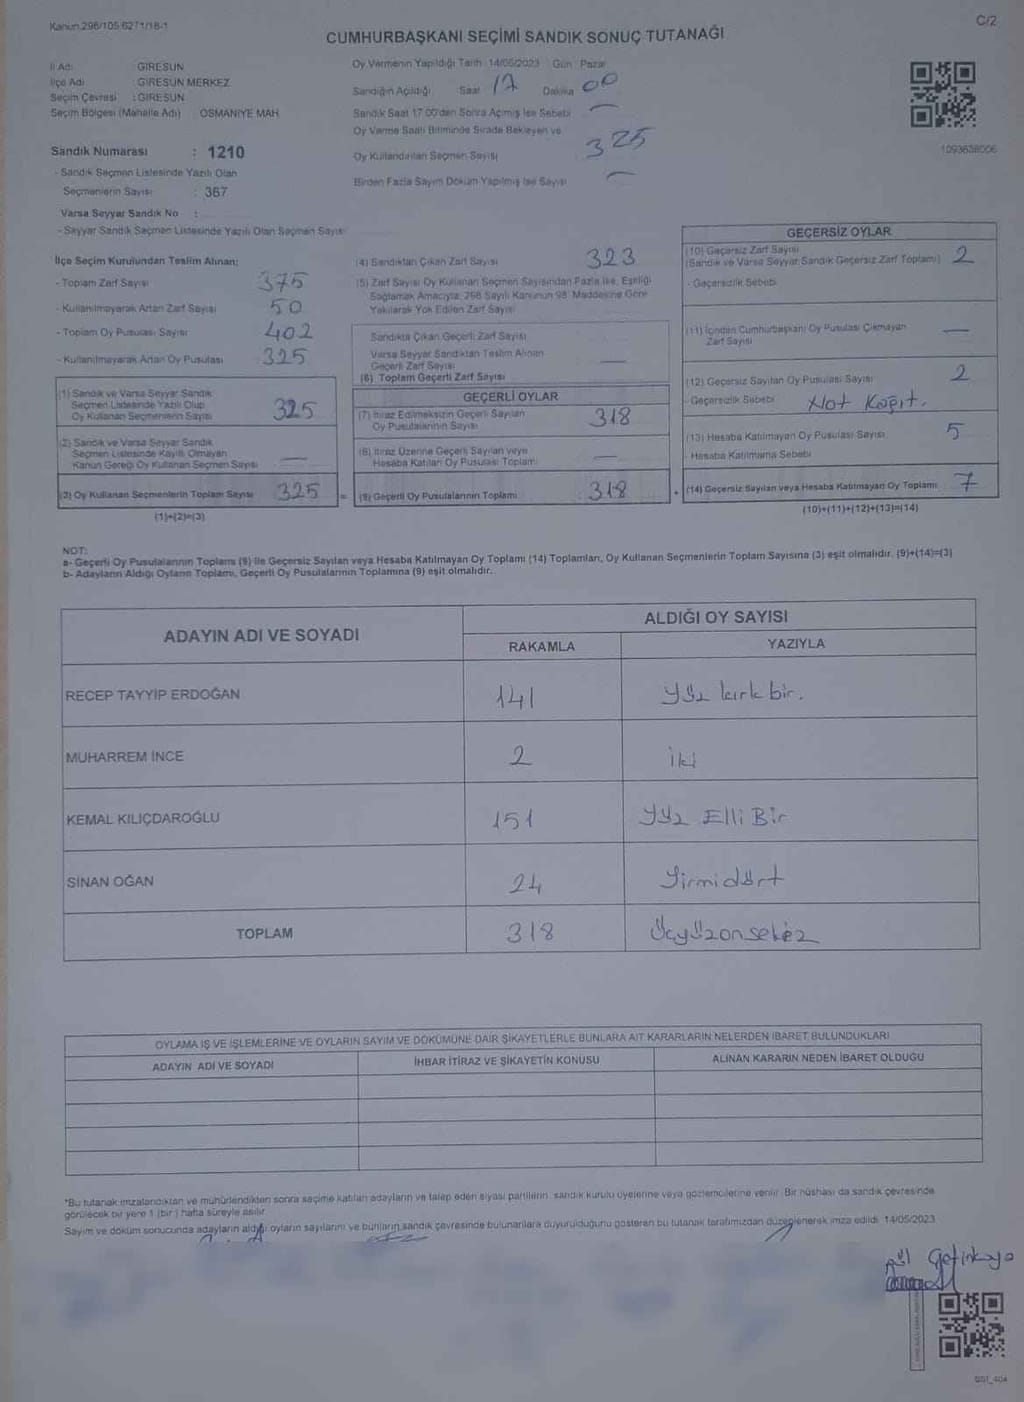 Kanun 296/105 6271/18-1
C/2
CUMHURBAŞKANI SEÇİMİ SANDIK SONUÇ TUTANAĞI
İl Adı : GİRESUN
İlçe Adı : GİRESUN MERKEZ
Seçim Çevresi : GİRESUN
Seçim Bölgesi (Mahalle Adı) OSMANİYE MAH
Sandık Numarası : 1210
- Sandık Seçmen Listesinde Yazılı Olan
Seçmenlerin Sayısı : 367
Varsa Seyyar Sandık No :
- Seyyar Sandık Seçmen Listesinde Yazılı Olan Seçmen Sayısı
Oy Vermenin Yapıldığı Tarih 14/05/2023 Gün Pazar
Sandığın Açıldığı Saat 17 Dakika 00
Sandık Saat 17.00'den Sonra Açılmış İse Sebebi —
Oy Verme Saati Bitiminde Sırada Bekleyen ve
Oy Kullandırılan Seçmen Sayısı 325
Birden Fazla Sayım Döküm Yapılmış İse Sayısı —
1093638006
İlçe Seçim Kurulundan Teslim Alınan:
- Toplam Zarf Sayısı 375
- Kullanılmayarak Artan Zarf Sayısı 50
- Toplam Oy Pusulası Sayısı 402
- Kullanılmayarak Artan Oy Pusulası 325
(1) Sandık ve Varsa Seyyar Sandık
Seçmen Listesinde Yazılı Olup
Oy Kullanan Seçmenlerin Sayısı 325
(2) Sandık ve Varsa Seyyar Sandık
Seçmen Listesinde Kayıtlı Olmayan
Kanun Gereği Oy Kullanan Seçmen Sayısı —
(3) Oy Kullanan Seçmenlerin Toplam Sayısı 325
(1)+(2)=(3)
(4) Sandıktan Çıkan Zarf Sayısı 323
(5) Zarf Sayısı Oy Kullanan Seçmen Sayısından Fazla İse, Eşitliği
Sağlamak Amacıyla, 298 Sayılı Kanunun 98. Maddesine Göre
Yakılarak Yok Edilen Zarf Sayısı
Sandıkta Çıkan Geçerli Zarf Sayısı
Varsa Seyyar Sandıktan Teslim Alınan
Geçerli Zarf Sayısı —
(6) Toplam Geçerli Zarf Sayısı
GEÇERLİ OYLAR
(7) İtiraz Edilmeksizin Geçerli Sayılan
Oy Pusulalarının Sayısı 318
(8) İtiraz Üzerine Geçerli Sayılan veya
Hesaba Katılan Oy Pusulası Toplamı —
= (9) Geçerli Oy Pusulalarının Toplamı 318
GEÇERSİZ OYLAR
(10) Geçersiz Zarf Sayısı
(Sandık ve Varsa Seyyar Sandık Geçersiz Zarf Toplamı) 2
- Geçersizlik Sebebi
(11) İçinden Cumhurbaşkanı Oy Pusulası Çıkmayan
Zarf Sayısı —
(12) Geçersiz Sayılan Oy Pusulası Sayısı 2
- Geçersizlik Sebebi Not Kağıt.
(13) Hesaba Katılmayan Oy Pusulası Sayısı 5
- Hesaba Katılmama Sebebi
+ (14) Geçersiz Sayılan veya Hesaba Katılmayan Oy Toplamı 7
(10)+(11)+(12)+(13)=(14)
NOT:
a- Geçerli Oy Pusulalarının Toplamı (9) ile Geçersiz Sayılan veya Hesaba Katılmayan Oy Toplamı (14) Toplamları, Oy Kullanan Seçmenlerin Toplam Sayısına (3) eşit olmalıdır. (9)+(14)=(3)
b- Adayların Aldığı Oyların Toplamı, Geçerli Oy Pusulalarının Toplamına (9) eşit olmalıdır.
ADAYIN ADI VE SOYADI
ALDIĞI OY SAYISI
RAKAMLA YAZIYLA
RECEP TAYYİP ERDOĞAN 141 Yüz kırk bir.
MUHARREM İNCE 2 iki
KEMAL KILIÇDAROĞLU 151 Yüz Elli Bir
SİNAN OĞAN 24 Yirmidört
TOPLAM 318 Üçyüzonsekiz
OYLAMA İŞ VE İŞLEMLERİNE VE OYLARIN SAYIM VE DÖKÜMÜNE DAİR ŞİKAYETLERLE BUNLARA AİT KARARLARIN NELERDEN İBARET BULUNDUKLARI
ADAYIN ADI VE SOYADI İHBAR İTİRAZ VE ŞİKAYETİN KONUSU ALINAN KARARIN NEDEN İBARET OLDUĞU
*Bu tutanak imzalandıktan ve mühürlendikten sonra seçime katılan adayların ve talep eden siyasi partilerin sandık kurulu üyelerine veya gözlemcilerine verilir. Bir nüshası da sandık çevresinde
görülecek bir yere 1 (bir) hafta süreyle asılır.
Sayım ve döküm sonucunda adayların aldığı oyların sayılarını ve bunların sandık çevresinde bulunanlara duyurulduğunu gösteren bu tutanak tarafımızdan düzenlenerek imza edildi. 14/05/2023